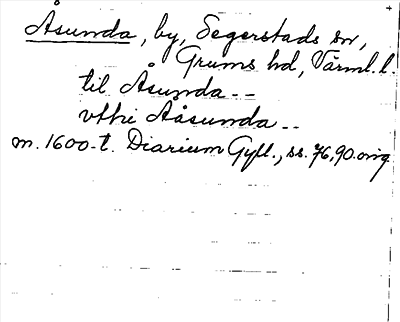 Åsunda, by, Segerstads sn,
Grums hd, Värml. l.
til Åsunda --
vthi Aåsunda --
m. 1600-t. Diarium Gyll., ss. 76, 90. orig.